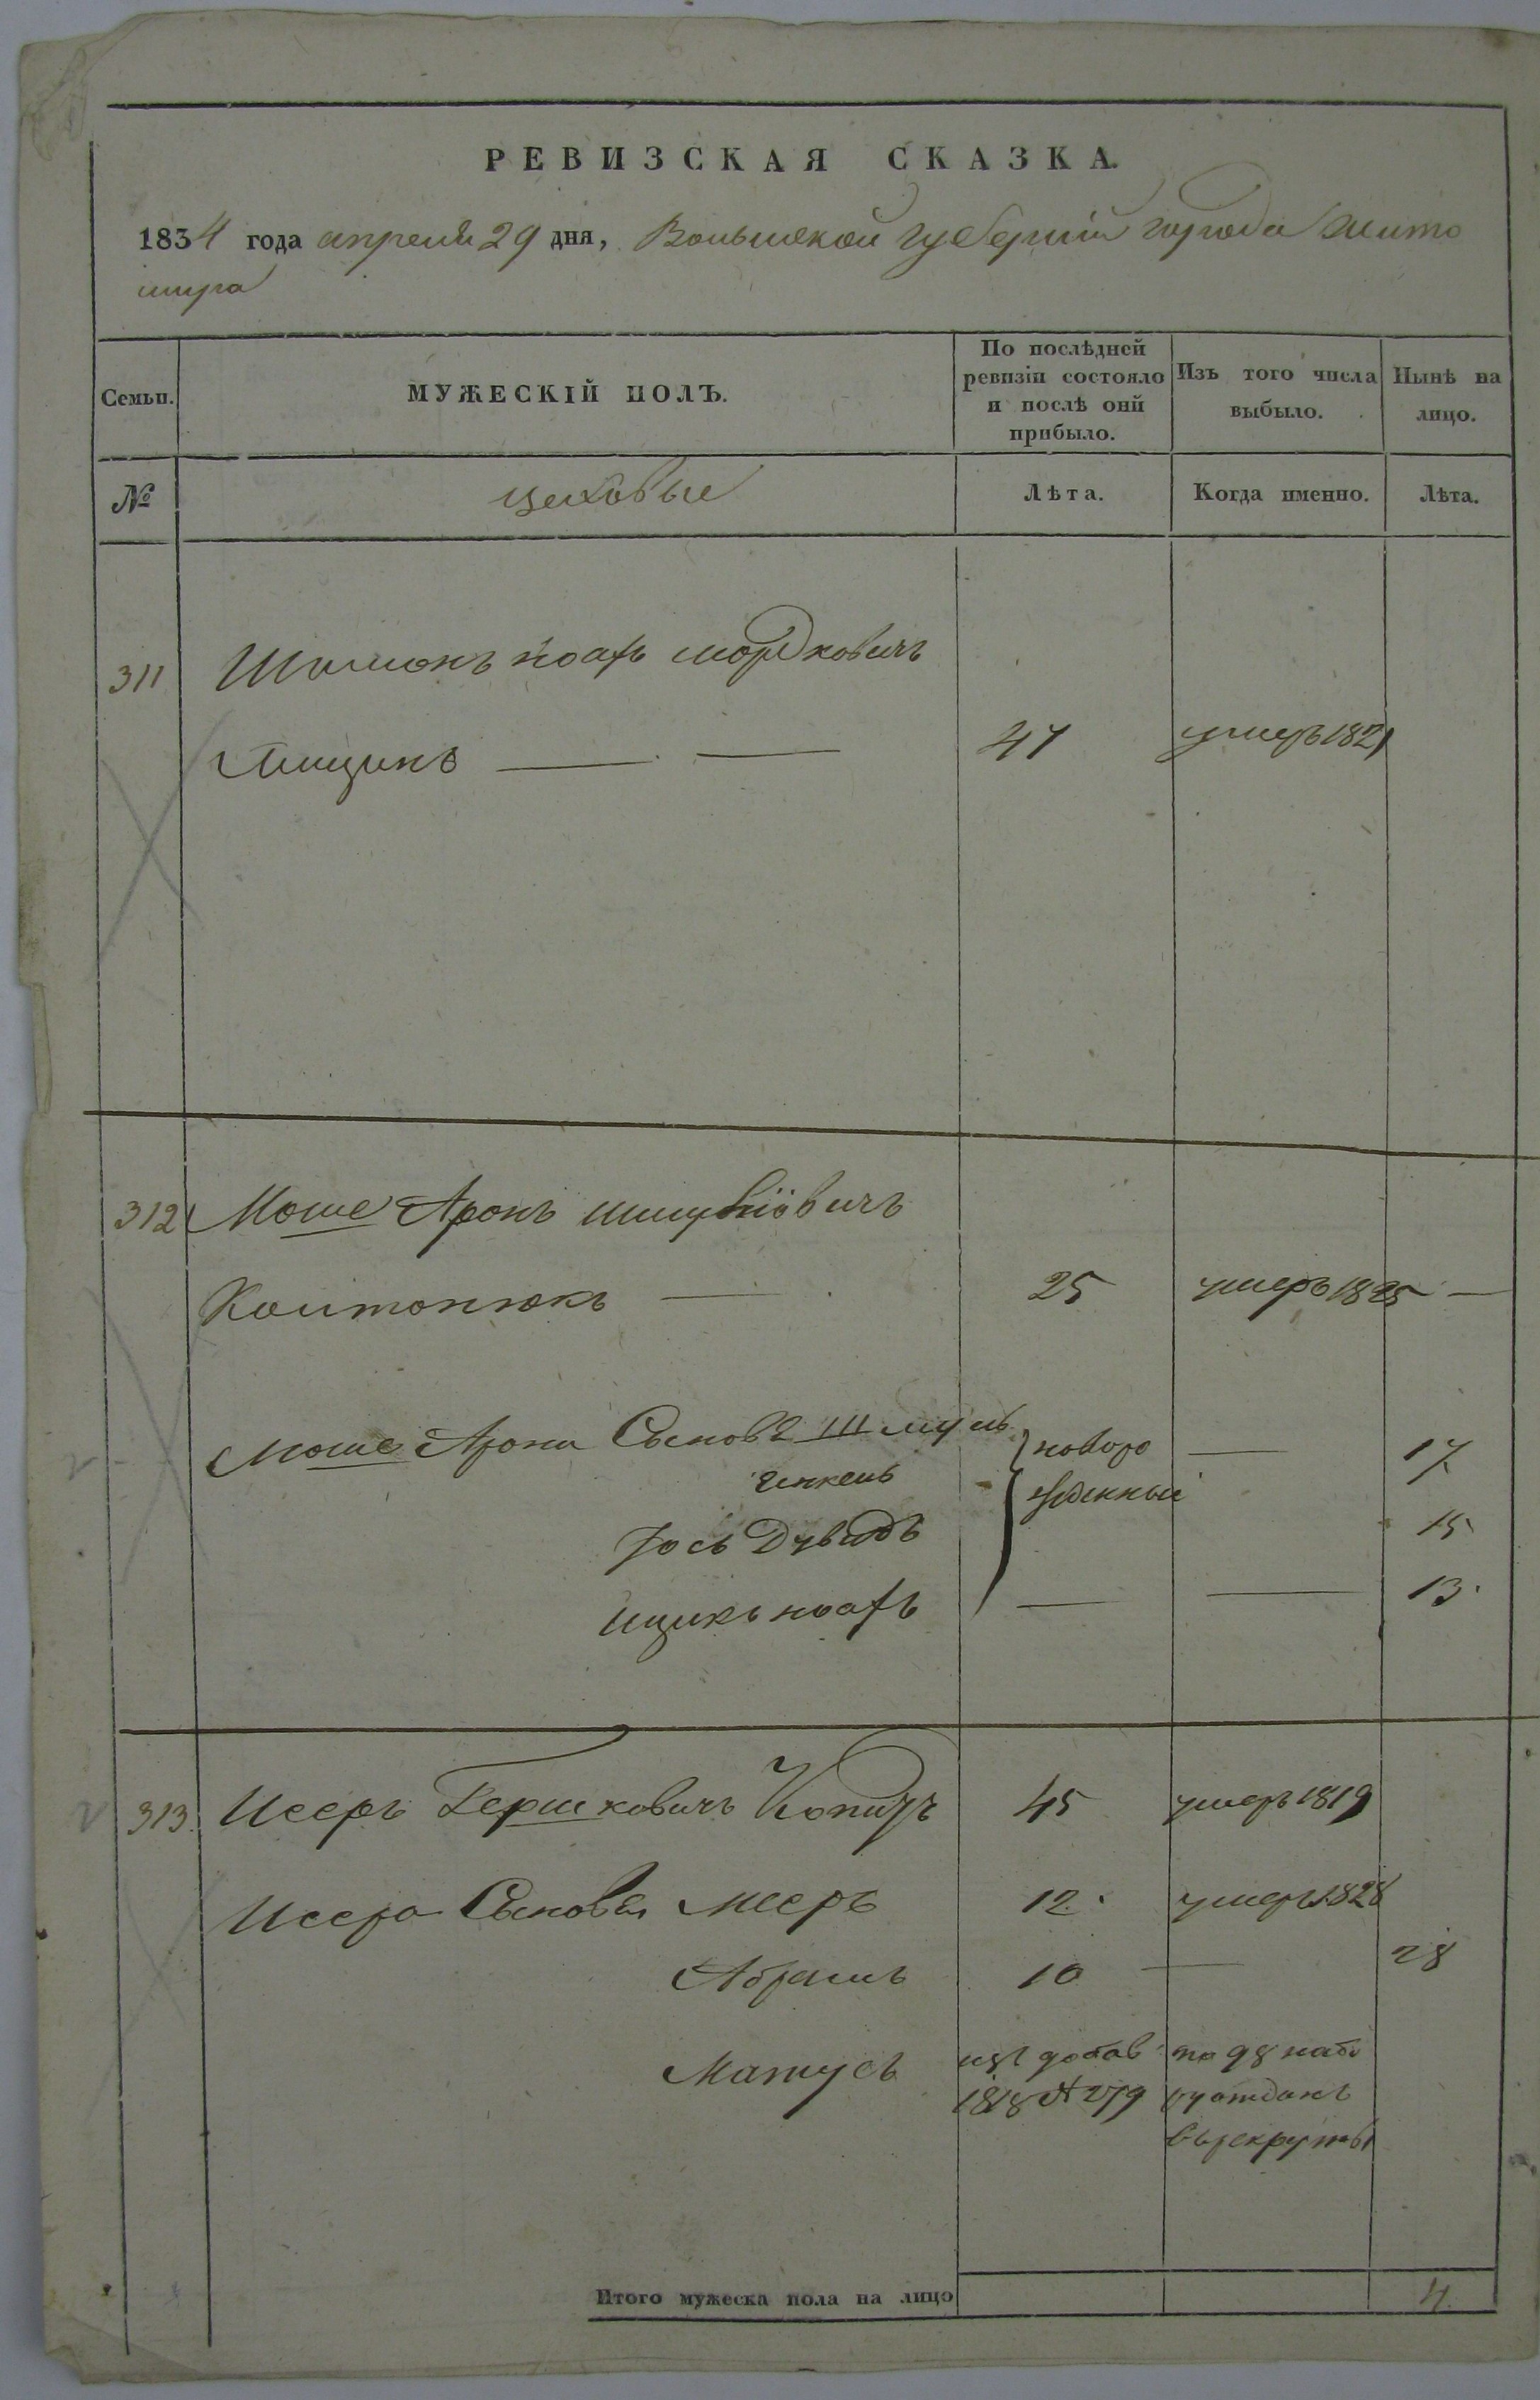 РЕВИЗСКАЯ СКАЗКА.
1834 года апреля 29 дня, Волынской губернiи города Жито
мира
Семьи. МУЖЕСКIЙ ПОЛЪ. По послѣдней ревизiи состояло и послѣ онй прибыло. Изъ того числа выбыло. Нынѣ на лицо.
№ цеховые Лѣта. Когда именно. Лѣта.
311 Шлiомонъ Ноахъ Мордковичъ
47 умеръ 1821
312 Моше Аронъ
Колтонюкъ 25 умеръ 1825
Моше Арона Сыновя Шмуль новоро 17
женные
Iось Дувидъ 15
Ицикъ Ноахъ 13
313 Исеръ Гершковичъ 45 умеръ 1819
Исера Сыновья Мееръ 12 умеръ 1828
Абрамъ 10 28
Матусъ изъ добав по 98 набо
1818 № 279 ру отданъ
въ рекруты
Итого мужеска пола на лицо 4